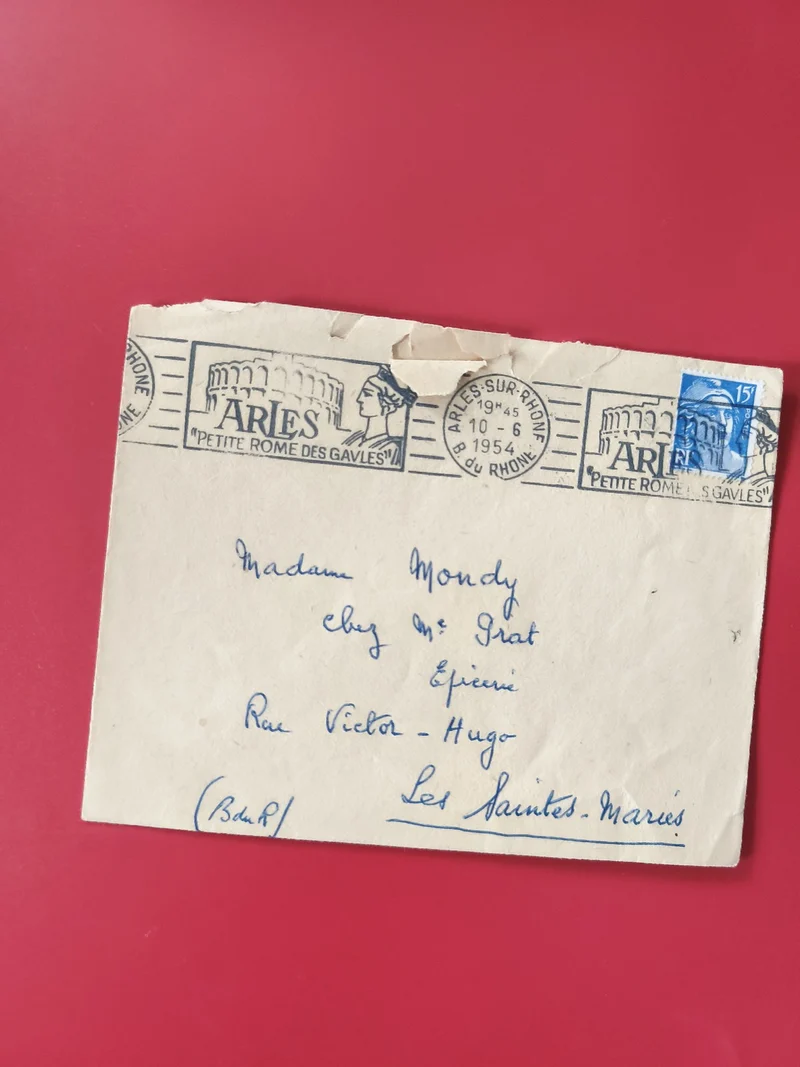 RHONE
ONE
ARLES
"PETITE ROME DES GAVLES"
ARLES-SUR-RHONE
19H45
10 - 6
1954
B. du RHONE
15f
ARLES
"PETITE ROME S GAVLES"
Madame Mondy
chez Me Grat
Epicerie
Rue Victor - Hugo
Les Saintes - Maries
(B du R)